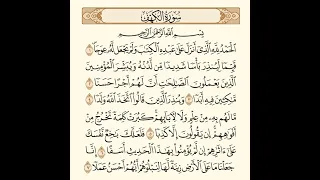 سُورَةُ الكَهْفِ
بِسْمِ اللَّهِ الرَّحْمَٰنِ الرَّحِيمِ
الْحَمْدُ لِلَّهِ الَّذِي أَنزَلَ عَلَىٰ عَبْدِهِ الْكِتَٰبَ وَلَمْ يَجْعَل لَّهُ عِوَجَا ۜ ١
قَيِّمًا لِّيُنذِرَ بَأْسًا شَدِيدًا مِّن لَّدُنْهُ وَيُبَشِّرَ الْمُؤْمِنِينَ
الَّذِينَ يَعْمَلُونَ الصَّٰلِحَٰتِ أَنَّ لَهُمْ أَجْرًا حَسَنًا ٢
مَّٰكِثِينَ فِيهِ أَبَدًا ٣ وَيُنذِرَ الَّذِينَ قَالُوا اتَّخَذَ اللَّهُ وَلَدًا ٤
مَّا لَهُم بِهِ مِنْ عِلْمٍ وَلَا لِءَابَائِهِمْ كَبُرَتْ كَلِمَةً تَخْرُجُ مِنْ
أَفْوَٰهِهِمْ إِن يَقُولُونَ إِلَّا كَذِبًا ٥ فَلَعَلَّكَ بَٰخِعٌ نَّفْسَكَ
عَلَىٰ ءَاثَٰرِهِمْ إِن لَّمْ يُؤْمِنُوا بِهَٰذَا الْحَدِيثِ أَسَفًا ٦ إِنَّا
جَعَلْنَا مَا عَلَى الْأَرْضِ زِينَةً لَّهَا لِنَبْلُوَهُمْ أَيُّهُمْ أَحْسَنُ عَمَلًا ٧